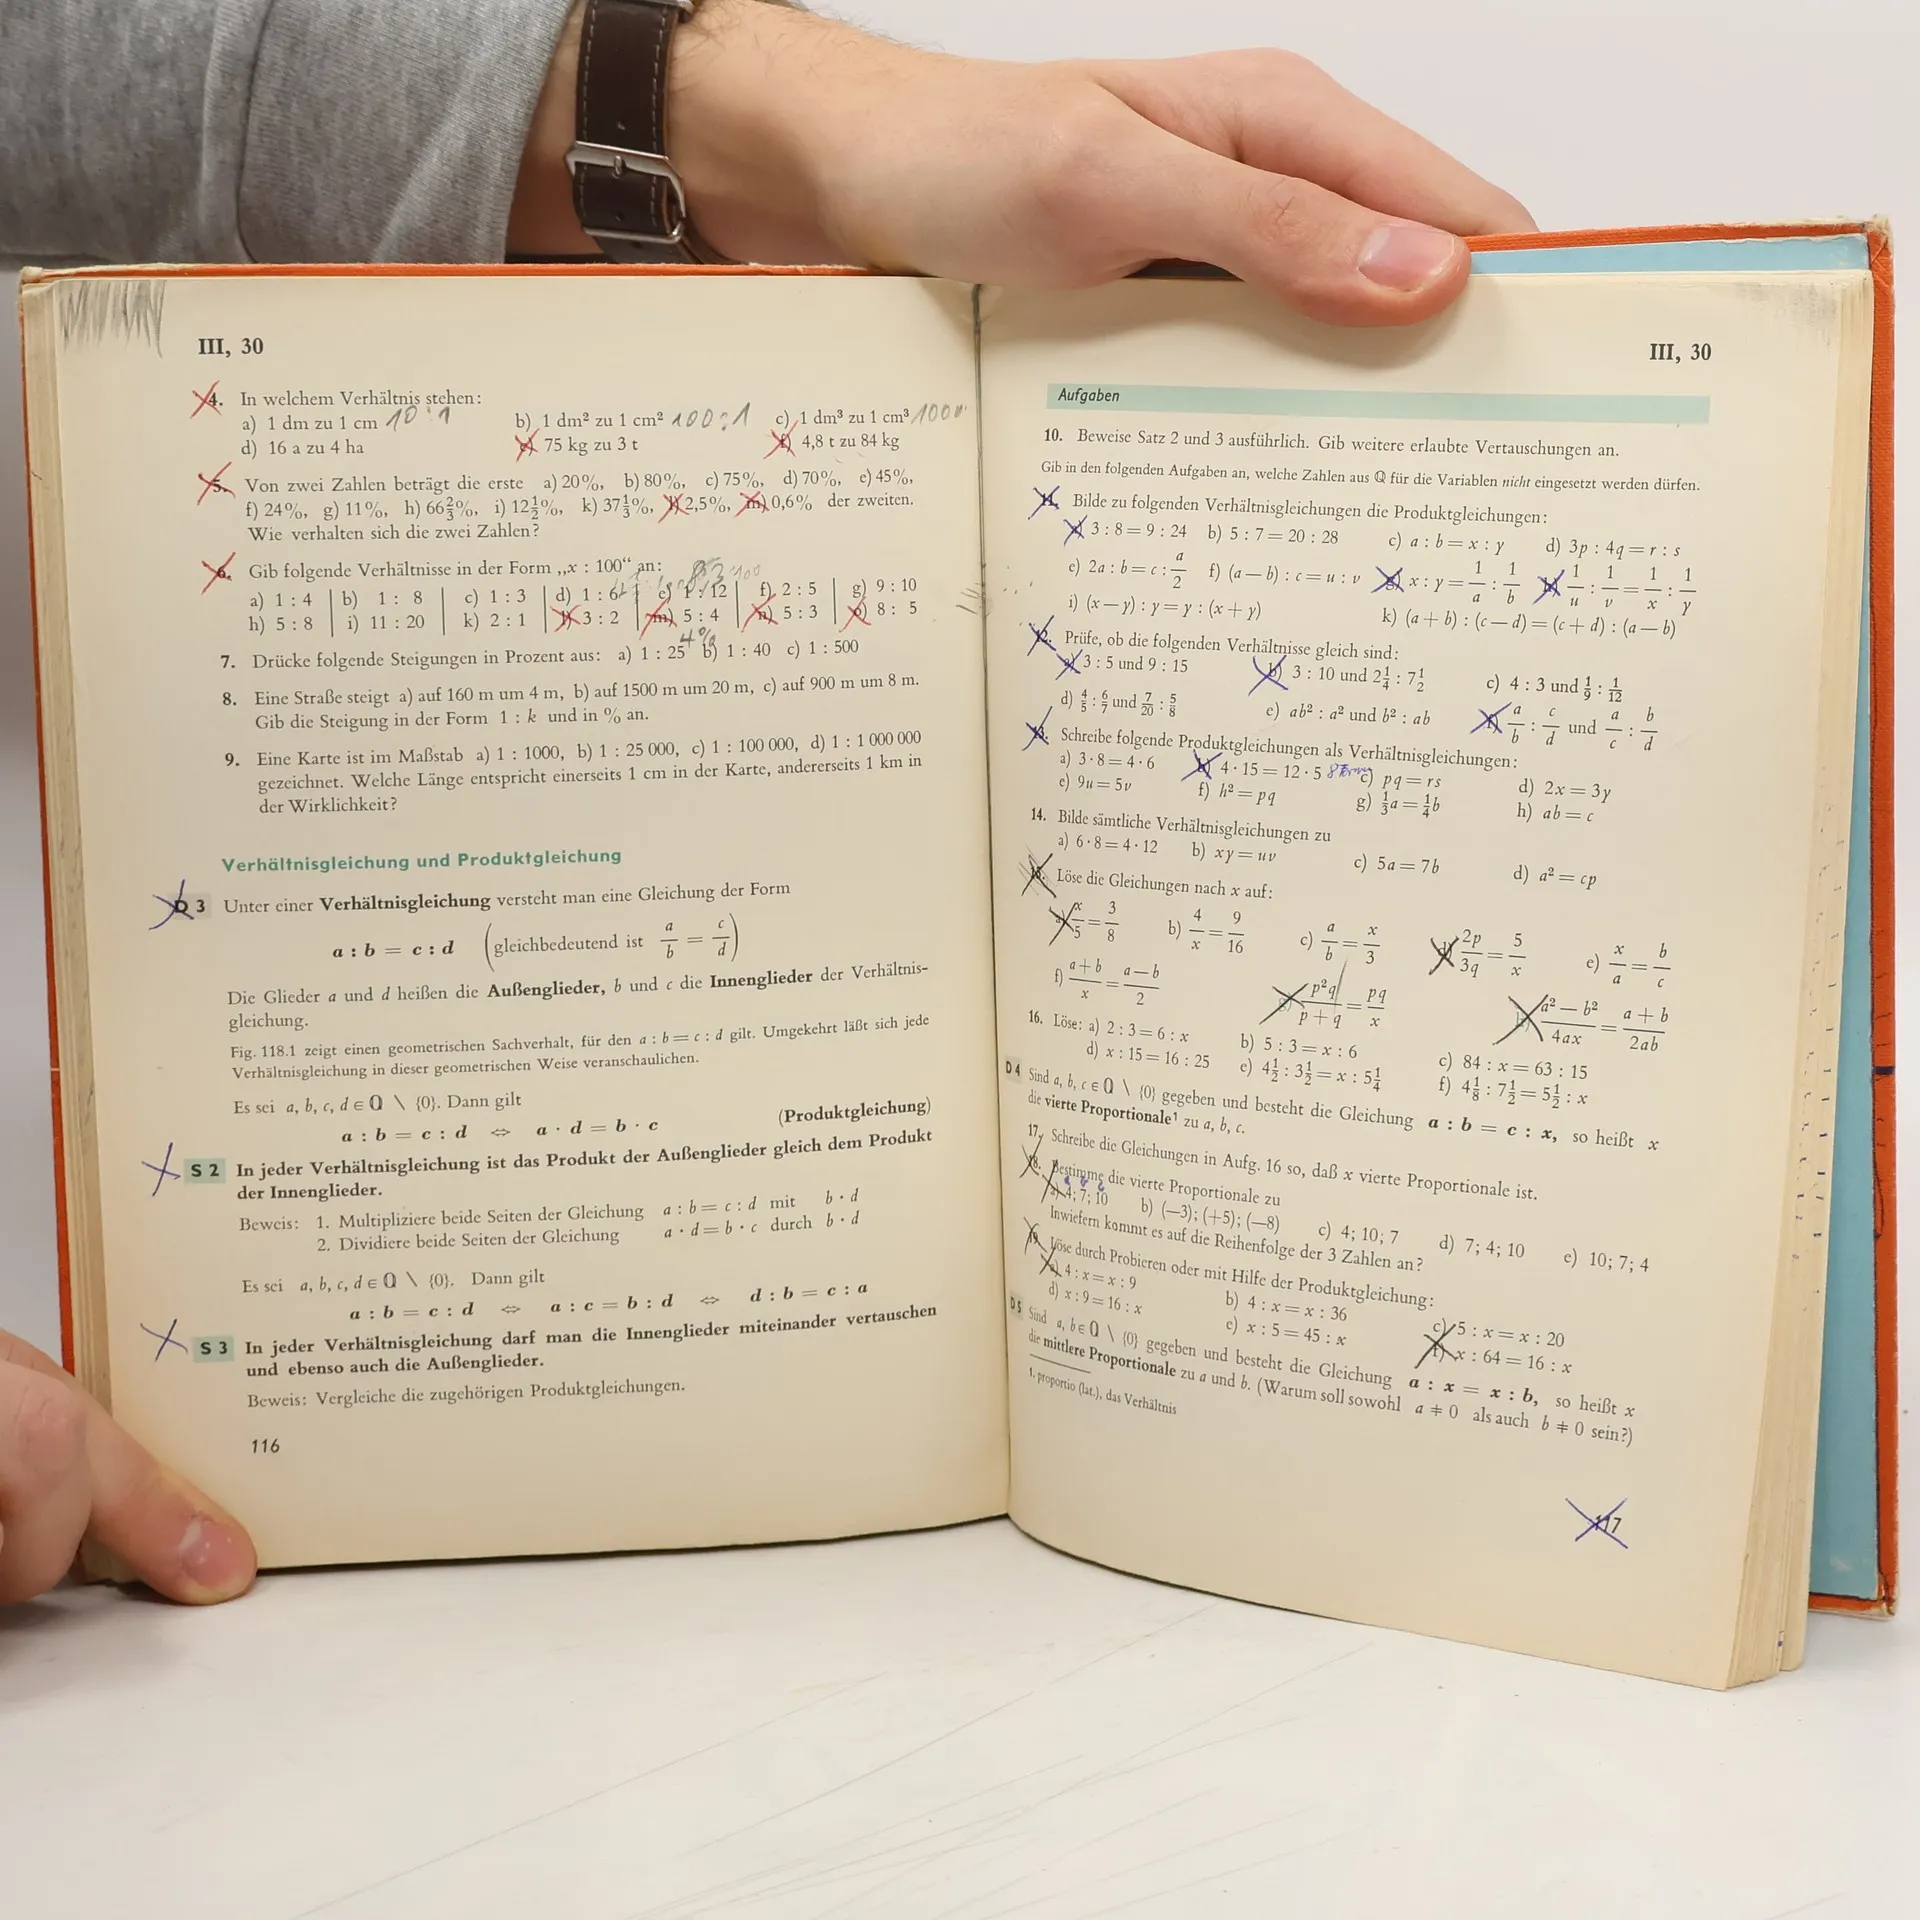 III, 30
4. In welchem Verhältnis stehen:
a) 1 dm zu 1 cm 10 : 1 b) 1 dm² zu 1 cm² 100 : 1 c) 1 dm³ zu 1 cm³
d) 16 a zu 4 ha e) 75 kg zu 3 t f) 4,8 t zu 84 kg
5. Von zwei Zahlen beträgt die erste a) 20%, b) 80%, c) 75%, d) 70%, e) 45%,
f) 24%, g) 11%, h) 66⅔%, i) 12½%, k) 37⅓%, l) 2,5%, m) 0,6% der zweiten.
Wie verhalten sich die zwei Zahlen?
6. Gib folgende Verhältnisse in der Form „x : 100“ an:
a) 1 : 4 b) 1 : 8 c) 1 : 3 d) 1 : 6 e) 1 : 12 f) 2 : 5 g) 9 : 10
h) 5 : 8 i) 11 : 20 k) 2 : 1 l) 3 : 2 m) 5 : 4 n) 5 : 3 o) 8 : 5
4%
7. Drücke folgende Steigungen in Prozent aus: a) 1 : 25 b) 1 : 40 c) 1 : 500
8. Eine Straße steigt a) auf 160 m um 4 m, b) auf 1500 m um 20 m, c) auf 900 m um 8 m.
Gib die Steigung in der Form 1 : k und in % an.
9. Eine Karte ist im Maßstab a) 1 : 1000, b) 1 : 25 000, c) 1 : 100 000, d) 1 : 1 000 000
gezeichnet. Welche Länge entspricht einerseits 1 cm in der Karte, andererseits 1 km in
der Wirklichkeit?
Verhältnisgleichung und Produktgleichung
D 3 Unter einer Verhältnisgleichung versteht man eine Gleichung der Form
a : b = c : d (gleichbedeutend ist a/b = c/d)
Die Glieder a und d heißen die Außenglieder, b und c die Innenglieder der Verhältnis-
gleichung.
Fig. 118.1 zeigt einen geometrischen Sachverhalt, für den a : b = c : d gilt. Umgekehrt läßt sich jede
Verhältnisgleichung in dieser geometrischen Weise veranschaulichen.
Es sei a, b, c, d ∈ ℚ \ {0}. Dann gilt
a : b = c : d ⇔ a · d = b · c (Produktgleichung)
S 2 In jeder Verhältnisgleichung ist das Produkt der Außenglieder gleich dem Produkt
der Innenglieder.
Beweis: 1. Multipliziere beide Seiten der Gleichung a : b = c : d mit b · d
2. Dividiere beide Seiten der Gleichung a · d = b · c durch b · d
Es sei a, b, c, d ∈ ℚ \ {0}. Dann gilt
a : b = c : d ⇔ a : c = b : d ⇔ d : b = c : a
S 3 In jeder Verhältnisgleichung darf man die Innenglieder miteinander vertauschen
und ebenso auch die Außenglieder.
Beweis: Vergleiche die zugehörigen Produktgleichungen.
116
III, 30
Aufgaben
10. Beweise Satz 2 und 3 ausführlich. Gib weitere erlaubte Vertauschungen an.
Gib in den folgenden Aufgaben an, welche Zahlen aus ℚ für die Variablen nicht eingesetzt werden dürfen.
11. Bilde zu folgenden Verhältnisgleichungen die Produktgleichungen:
a) 3 : 8 = 9 : 24 b) 5 : 7 = 20 : 28 c) a : b = x : y d) 3p : 4q = r : s
e) 2a : b = c : a/2 f) (a — b) : c = u : v g) x : y = 1/a : 1/b h) 1/u : 1/v = 1/x : 1/y
i) (x — y) : y = y : (x + y) k) (a + b) : (c — d) = (c + d) : (a — b)
12. Prüfe, ob die folgenden Verhältnisse gleich sind:
a) 3 : 5 und 9 : 15 b) 3 : 10 und 2¼ : 7½ c) 4 : 3 und 1/9 : 1/12
d) 4/5 : 6/7 und 7/20 : 5/8 e) ab² : a² und b² : ab f) a/b : c/d und a/c : b/d
13. Schreibe folgende Produktgleichungen als Verhältnisgleichungen:
a) 3 · 8 = 4 · 6 b) 4 · 15 = 12 · 5 c) pq = rs d) 2x = 3y
e) 9u = 5v f) h² = pq g) ⅓a = ¼b h) ab = c
14. Bilde sämtliche Verhältnisgleichungen zu
a) 6 · 8 = 4 · 12 b) xy = uv c) 5a = 7b d) a² = cp
15. Löse die Gleichungen nach x auf:
a) x/5 = 3/8 b) 4/x = 9/16 c) a/b = x/3 d) 2p/3q = 5/x e) x/a = b/c
f) (a + b)/x = (a — b)/2 g) p²q/(p + q) = pq/x h) (a² — b²)/4ax = (a + b)/2ab
16. Löse: a) 2 : 3 = 6 : x b) 5 : 3 = x : 6 c) 84 : x = 63 : 15
d) x : 15 = 16 : 25 e) 4½ : 3½ = x : 5¼ f) 4⅛ : 7½ = 5½ : x
D 4 Sind a, b, c ∈ ℚ \ {0} gegeben und besteht die Gleichung a : b = c : x, so heißt x
die vierte Proportionale¹ zu a, b, c.
17. Schreibe die Gleichungen in Aufg. 16 so, daß x vierte Proportionale ist.
18. Bestimme die vierte Proportionale zu
a) 4; 7; 10 b) (—3); (+5); (—8) c) 4; 10; 7 d) 7; 4; 10 e) 10; 7; 4
Inwiefern kommt es auf die Reihenfolge der 3 Zahlen an?
19. Löse durch Probieren oder mit Hilfe der Produktgleichung:
a) 4 : x = x : 9 b) 4 : x = x : 36 c) 5 : x = x : 20
d) x : 9 = 16 : x e) x : 5 = 45 : x f) x : 64 = 16 : x
D 5 Sind a, b ∈ ℚ \ {0} gegeben und besteht die Gleichung a : x = x : b, so heißt x
die mittlere Proportionale zu a und b. (Warum soll sowohl a ≠ 0 als auch b ≠ 0 sein?)
1. proportio (lat.), das Verhältnis
117